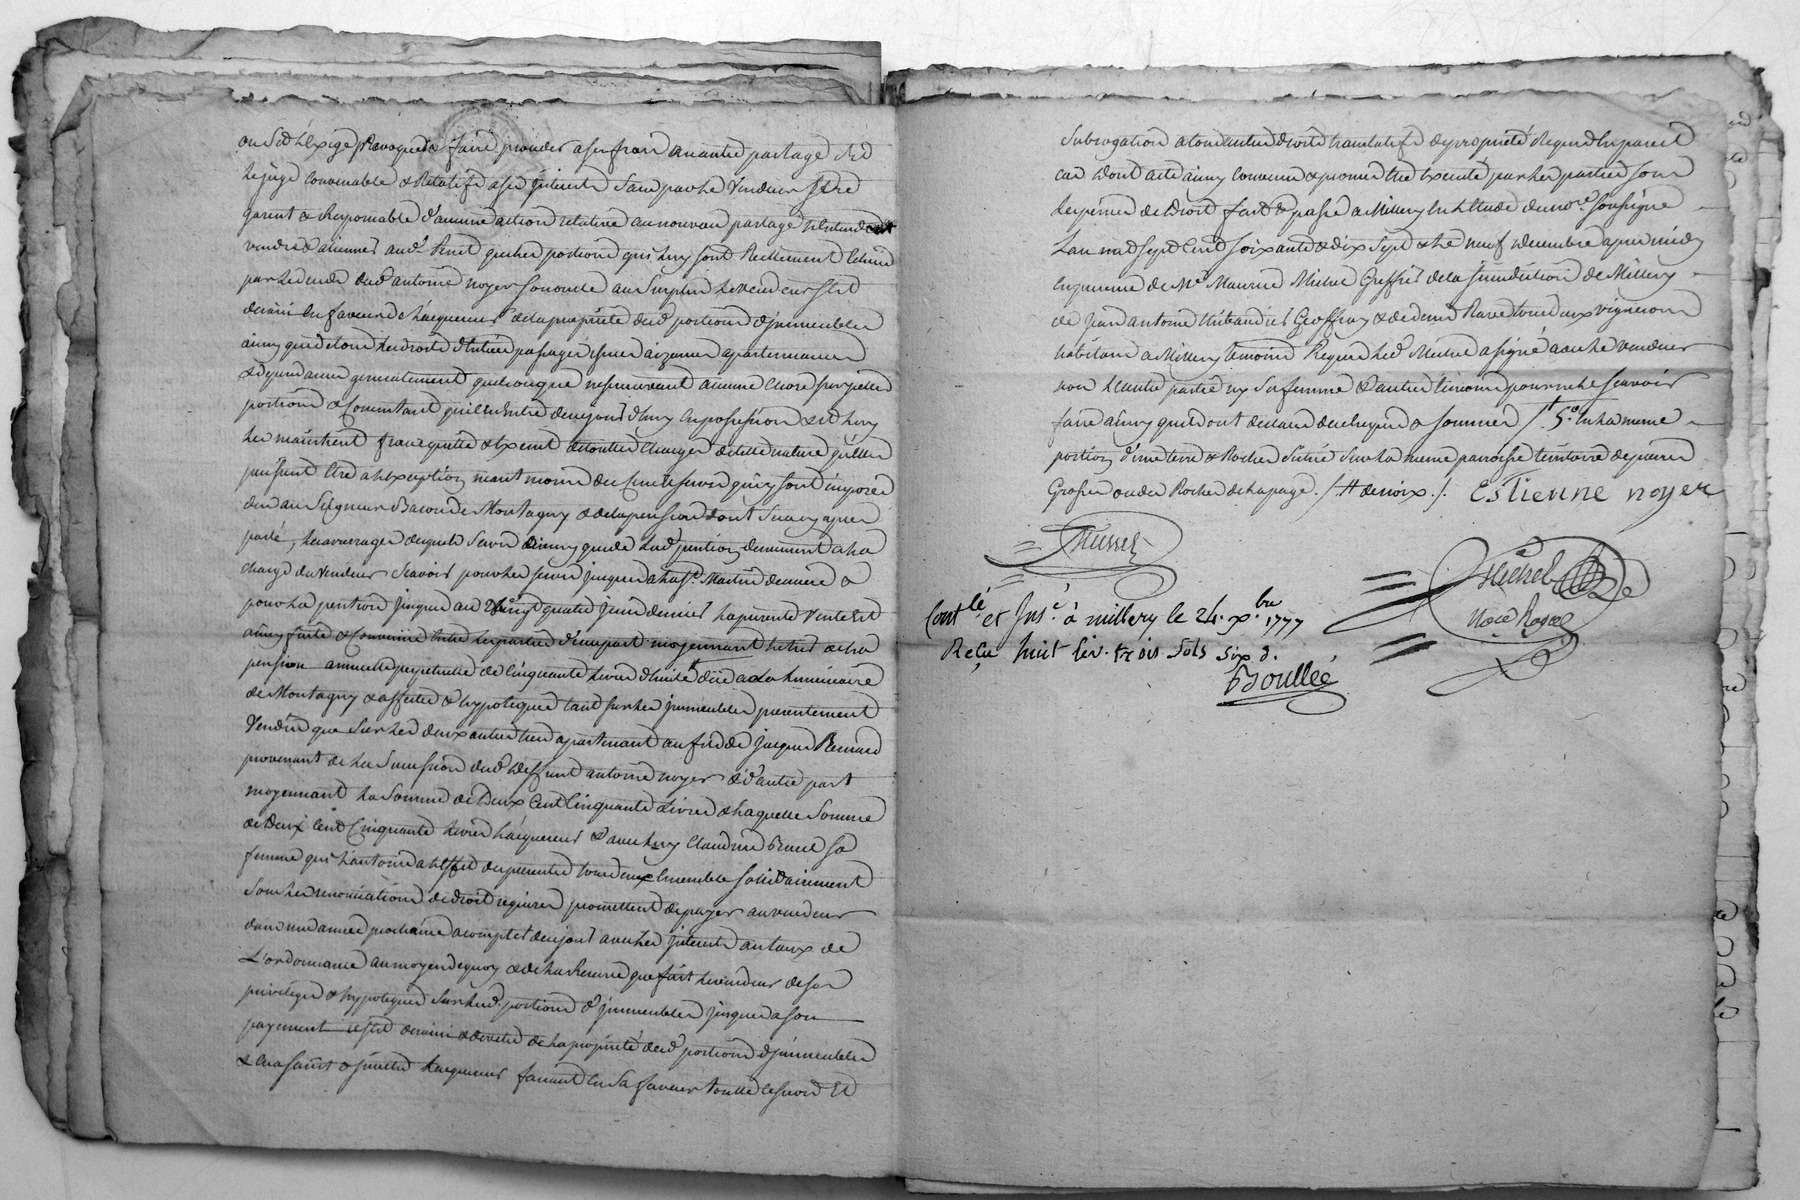 ou s'il l'exige provoquer & faire proceder a ses frais a un autre partage s'il
le juge convenable & relatif a ses interets sans que le vendeur soit
garent & responsable d'aucune action relative au nouveau partage n'entendant
vendre & aliener aud. que les portions qui luy sont reellement echues
par le deces dud antoine noyer son oncle au surplus le vendeur s'est
demis en faveur de l'acquereur de la propriété desd portions d'immeubles
ainsy que de tous les droits d'entrées passages issues aizances apartenances
& dependances generalement quelconques ne reservant aucune chose sur jcelles
portions & consentant qu'il en entre dès ce jourd'huy en possession & il les luy
maintient francs quitte & exempt de toutes charges de telle nature qu'elles
puissent etre a l'exception neant moins du cens & servis qui y sont imposés
dûs au Seigneur Baron de Montagny & de la pension dont sera cy apres
parlé, les arrerages desquels servis ainsy que de lad pension demeurent a la
charge du vendeur scavoir pour les servis jusques a la St. Martin derniere &
pour la pension jusques au vingt quatre juin dernier la presente vente est
ainsy faite & convenue entre les parties d'une part moyennant le tiers de la
pension annuelle perpetuelle de cinquante livres düe a la Luminaire
de Montagny & affectée & hypotequée tant sur les jmmeubles presentement
vendus que sur les deux autres tiers apartenant au fils de jacques Renard
provenant de la succession dud deffunt antoine noyer & d'autre part
moyennant la somme de Deux Cent Cinquante Livres & laquelle somme
de Deux Cent Cinquante livres l'acquereur & avec luy Claudine sa
femme qu'il autorise a l'effet des presentes tous deux ensemble solidairement
sous les renonciations de droit requises promettent de payer au vendeur
dans une année prochaine a compter de ce jour avec les jnterets au taux de
L'ordonnance au moyen de quoy & de la reserve que fait le vendeur de son
privilege & hypoteque sur lesd. portions d'jmmeubles jusques a son
payement il s'est demis & devetu de la propriété desd portions d'jmmeubles
& en a saisi & jnvetu l'acquereur faisant en sa faveur toutte cession et
Subrogation a tous autres droits translatifs de propriété Requis En pareil
cas dont acte ainsy convenu & promis etre executé par les parties sous
les peines de Droit fait & passé a Millery En L'Etude du no.re soussigné
L'an mil sept Cent soixante & dix sept & le neuf decembre apres midy
En presence de Me Maurice Michel Greffier de la jurisdiction de Millery
de jean antoine Thibaudier Geoffray & de denis Rave tous deux vignerons
habitans a Millery temoins Requis led. Michel a signé avec le vendeur
non l'autre partie ny sa femme & l'autre temoin pour ne le scavoir
faire ainsy qu'ils ont declaré de ce Enquis & sommés /. 5.o En la meme
portion d'une terre & Rocher située sur la meme paroisse territoire des
Grosses ou du Rocher de la page. / & de noix ./. Estienne noyer
Michel
nore Royal
Contlé et Insé. à millery le 24. Xbre 1777
Reçu huit liv. trois sols six d.
Boullée